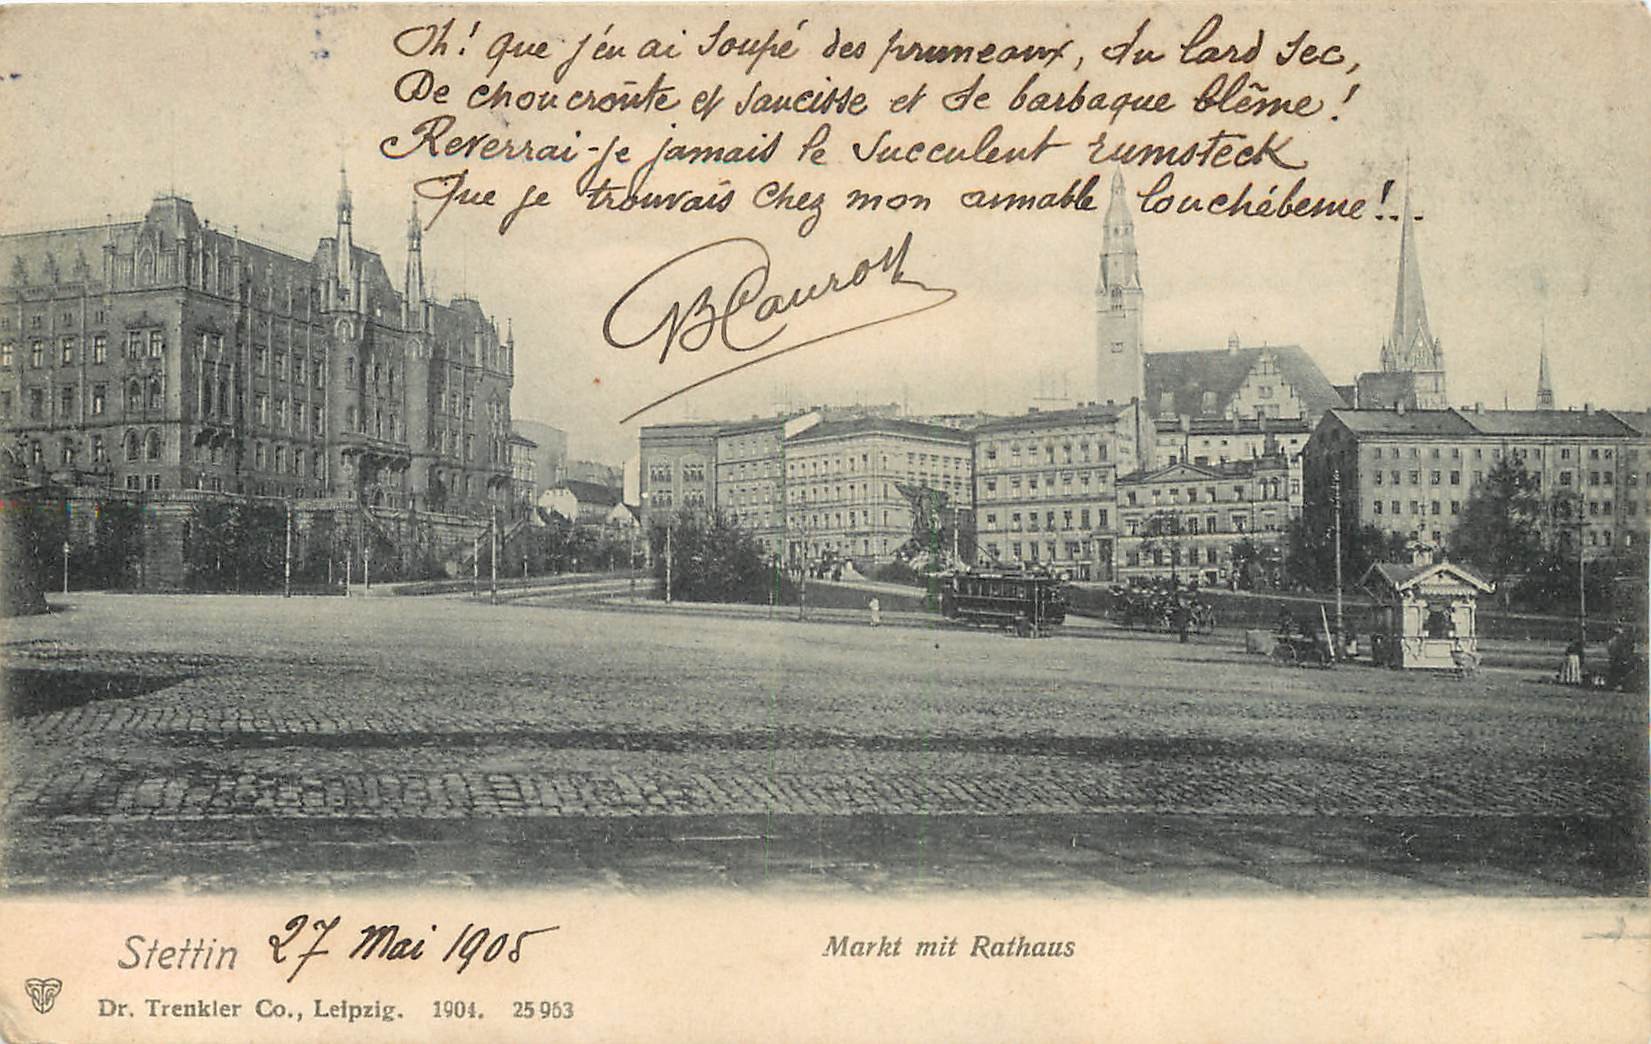 Oh! que j'en ai soupé des pruneaux, du lard sec,
De choucroûte et saucisse et de barbaque blême!
Reverrai-je jamais le succulent rumsteck
Que je trouvais chez mon aimable louchébeme!...
B Cauro
Stettin 27 Mai 1905
Markt mit Rathaus
Dr. Trenkler Co., Leipzig. 1904. 25 963